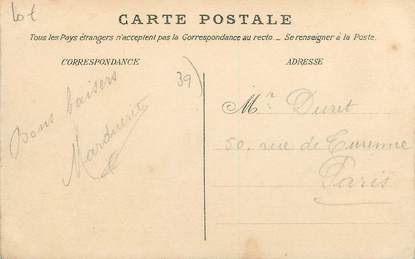 Lot
CARTE POSTALE
Tous les Pays étrangers n'acceptent pas la Correspondance au recto. _ Se renseigner à la Poste.
CORRESPONDANCE
ADRESSE
39)
Bons baisers
Marguerite
Mr Duret
50, rue de Turenne
Paris